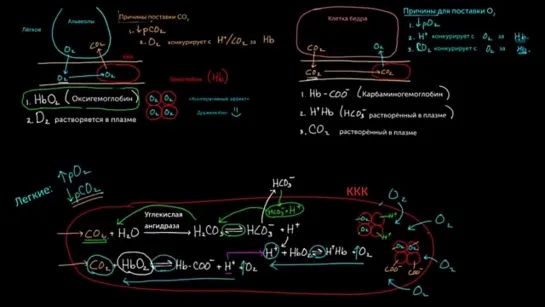 Лёгкое
Альвеолы
O₂
CO₂
O₂
O₂
ККК
Причины поставки CO₂
1. ↓pCO₂
2. O₂ конкурирует с H⁺/CO₂ за Hb
(Hb)
1. HbO₂ (Оксигемоглобин)
2. O₂ растворяется в плазме
O₂ O₂
O₂ O₂
Клетка бедра
CO₂
O₂
CO₂
O₂
Причины для поставки O₂
1. ↓pO₂
2. H⁺ конкурирует с O₂ за Hb
3. CO₂ конкурирует с O₂ за Hb
1. Hb-COO⁻ (Карбаминогемоглобин)
2. H⁺Hb (HCO₃⁻ растворённый в плазме)
3. CO₂ растворённый в плазме
Легкие: ↑pO₂
↓pCO₂
HCO₃⁻
HCO₃⁻+H⁺
ККК
Углекислая
ангидраза
CO₂ + H₂O → H₂CO₃ ⇌ HCO₃⁻ + H⁺
H⁺ + HbO₂ ⇌ H⁺Hb + O₂
CO₂ + HbO₂ ⇌ Hb-COO⁻ + H⁺ + O₂
O₂
O₂
O₂
O₂
H⁺
H⁺
O₂ O₂
O₂ O₂
COO⁻ COO⁻